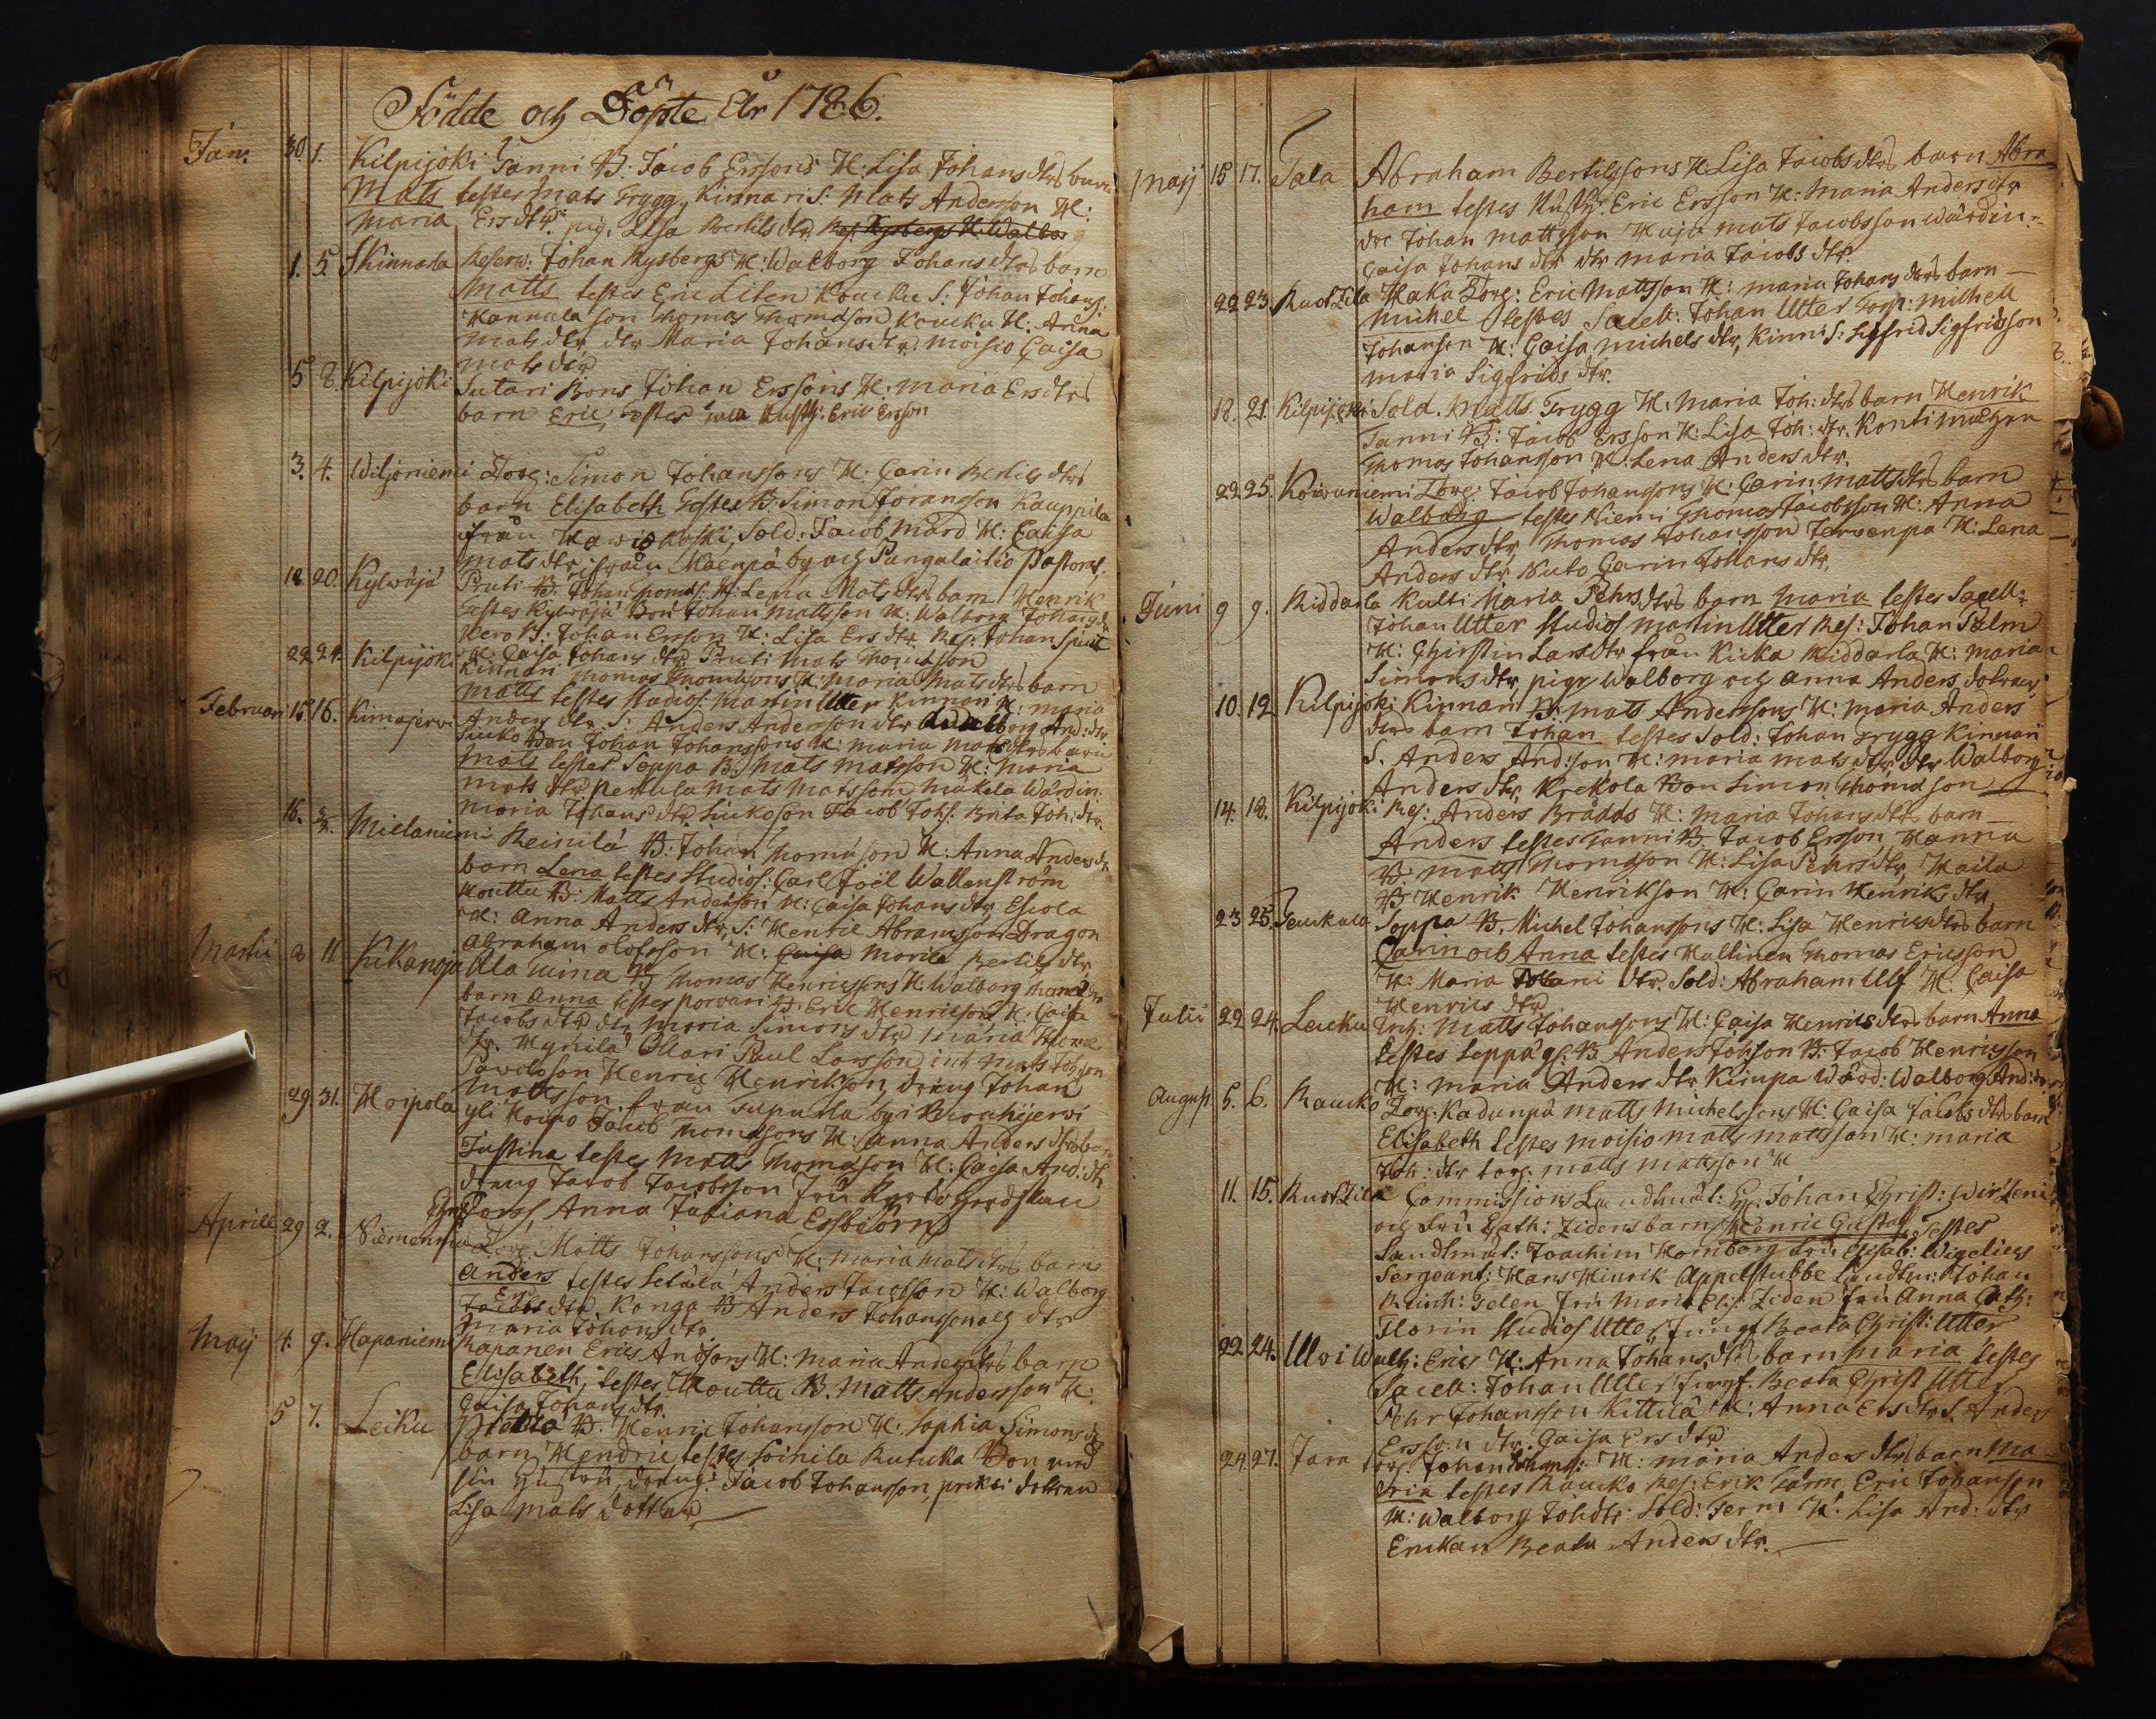 Födde och Döpte Åhr 1786.
Jan: 30 1. Kilpijoki Tanni B: Jacob Erssons H: Lisa Johans dtrs barn
Mats testes Mats Trygg, Kinnari S: Mats Andersson H:
Maria Ers dtr pig. Lisa Bertils dtr
1. 5. Skinnarla Reserw: Johan Rysbergs H: Walborg Johans dtrs barn
Matts testes Eric Liten Koucku S: Johan Johans:
Hannula son Thomas Thomasson Koucku H: Anna
Mats dtr dtr Maria Johans dtr. Moisio Caisa
Mats dtr
5 8. Kilpijoki Sutari Bons Johan Erssons H: Maria Ers dtrs
barn Eric, testes Eric Ersson
3. 4. Wiljoniemi Torp: Simon Johanssons H: Carin Bertils dtrs
barn Elisabeth testes B: Simon Jöransson Kauppila
ifrån Sold: Jacob Mård H: Caisa
Mats dtr, ifrån by och Pungalaitio Pastorat.
18 20. Kylwäjä Pruti B: Johan Thomas: H: Lena Mats dtrs barn Henrik
testes Kylwäjä Bon Johan Mattsson H: Walborg Johans dtr
Hero B: Johan Ersson H: Lisa Ers dtr Res: Johan
H: Caisa Johans dtr Pruti Mats Thomasson
22 24. Kilpijoki Kinnari Thomas Thomassons H: Maria Mats dtrs barn
Matts testes Studios: Martin Utter Kinnari H: Maria
Anders dtr S: Anders Andersson dtr Walborg And: dtr
Februari 15 16. Kimajerwi Suko Bon Johan Johanssons H: Maria Mats dtrs barn
Mats testes Soppa B. Mats Matsson H: Maria
Mats dtr Perkula Mats Matsson Makela Wärdin:
Maria Johans dtr Sukoson Jacob Johs. Brita Joh: dtr.
16. Mielaniemi Reinilä B: Johan Thomason H: Anna Anders dtr
barn Lena testes Studios: Carl Joël Wallenström
Mouttu B: Matts Andersson H: Caisa Johans dtr, Eskola
H: Anna Anders dtr, S: Henric Abramsson Dragon
Abraham Olofsson H: Maria Bertils dtr
Martii 8 11. Kikanoja Ala B: Thomas Henricssons H: Walborg
barn Anna testes Porwari B: Eric Henricsson H: Caisa
Jacobs dtr dtr Maria Simons dtr Maria
dtr. Hyhilä Ollari Paul Larsson inh: Mats Johsson
Henric Henriksson, dräng Johan
Mattsson. från by i
29. 31. Hoipola yli Hoipo Jacob Thomassons H: Anna Anders dtrs barn
Justina testes Matts Thomasson H: Caisa And: dtr
dräng Jacob Jacobsson Fru
Poss, Anna Tatiana Essbiörn
Aprill 29 2. Niemenpä Torp: Matts Johanssons H: Maria Mats dtrs barn
Anders testes Setälä Anders Jacobsson H: Walborg
Ers dtr, Konga B Anders Johansson och dtr
Maria Johans dtr.
Maij 4. 9. Hapaniemi Rapanen Erics Andsons H: Maria Anders dtrs barn
Elisabeth, testes Mouttu B. Matts Andersson H:
Caisa Johans dtr
5 7. Leiku B. Henric Johansson H. Sophia Simons dtr
barn Hendric testes Soinila Rutuka Bon med
sin Hustru, dräng: Jacob Johansson, dottren
Lisa Mats dotter
Maij 15 17. Tala Abraham Bertilssons H: Lisa Jacobs dtrs barn Abra-
ham testes Eric Ersson H: Maria Anders dtr
Johan Mattsson Huja Mats Jacobsson Wärdin:
Caisa Johans dtr dtr Maria Jacobs dtr.
22 23. Ruotzila Haka Torp: Eric Mattsson H: Maria Johans dtrs barn
Michel testes Sacell: Johan Utter Torp: Michell
Johanson H: Caisa Michels dtr, Kinni S: Sigfrid Sigfridsson
Maria Sigfrids dtr.
18. 21. Kilpijoki Sold. Matts Trygg H: Maria Joh: dtrs barn Henrik
Tanni B: Jacob Ersson H: Lisa Joh: dtr. Kontimäen
Thomas Johansson H: Lena Anders dtr.
22 25. Koiwuniemi Torp: Jacob Johanssons H: Carin Matts dtrs barn
Walborg testes Niemi Thomas Jacobsson H: Anna
Anders dtr, Thomas Johansson Terwenpä H: Lena
Anders dtr, Nuto Carin Johans dtr.
Juni 9 9. Riddarla Kulti Maria Pehrs dtrs barn Maria testes Sacell:
Johan Utter Studios Martin Utter Res: Johan Palm
H: Christin Lars dtr från Kicka Riddarla H: Maria
Simons dtr, pigr Walborg och Anna Anders dottrar.
10. 12 Kilpijoki Kinnari B: Mats Anderssons H: Maria Anders
dtrs barn Johan testes Sold: Johan Trygg Kinnari
S. Anders And:son H: Maria Mats dtr, dtr Walborg
Anders dtr, Krekola Bon Simon Thomasson
14. 18. Kilpijoki Res: Anders Brådds H: Maria Johans dtrs barn
Anders testes Tanni B. Jacob Ersson, Hannu
B. Matts Thomasson H: Lisa Pehrs dtr, Haila
B Henrik Henriksson H: Carin Henriks dtr
23 25. Teuckula Soppa B. Michel Johanssons H: Lisa Henrics dtrs barn
Carin och Anna testes Hallinen Thomas Ericsson
H: Maria dtr. Sold: Abraham Ulf H: Caisa
Henrics dtr
Julii 22 24. Leicku Inh: Matts Johanssons H: Caisa Henrics dtrs barn Anna
testes Leppä gl: B Anders Johsson B: Jacob Henricsson
H: Maria Anders dtr Kimpa Wärd: Walborg And: dtr
August 5. 6. Raucko Torp: Kadunpä Matts Michelssons H: Caisa Jacobs dtrs barn
Elisabeth testes Moisio Matts Mattsson H: Maria
Joh: dtr torp: Matts Mattsson H
11. 15. Ruotzila Commissions Landtmät: Hr. Johan Christ: Wirzeni
och Fru Cath: Zidens barn Henric Gustaf testes
Landtmät: Joachim Hornborg Fru Elisab: Wigelius
Sergeant: Hans Hinrik Appelstubbe Landtm: Johan
Fru Maria Elis: Ziden Fru Anna Cath:
Florin Studios Utter, Jungf Beata Christ: Utter
22. 24. Ulvi Walh: Erics H: Anna Johans dtrs barn Maria testes
Sacell: Johan Utter Jungf. Beata Christ Utter
Pehr Johansson Kittilä H: Anna Ers dtr S. Anders
Ersson dtr. Caisa Ers dtr
24. 27. Jara Torp: Johan Johans: H: Maria Anders dtrs barn Ma-
ria testes Raucko Res: Erik Eric Johansson
H: Walborg Joh dtr: Sold: Jern H: Lisa And: dtr
Enckan Beata Anders dtr.